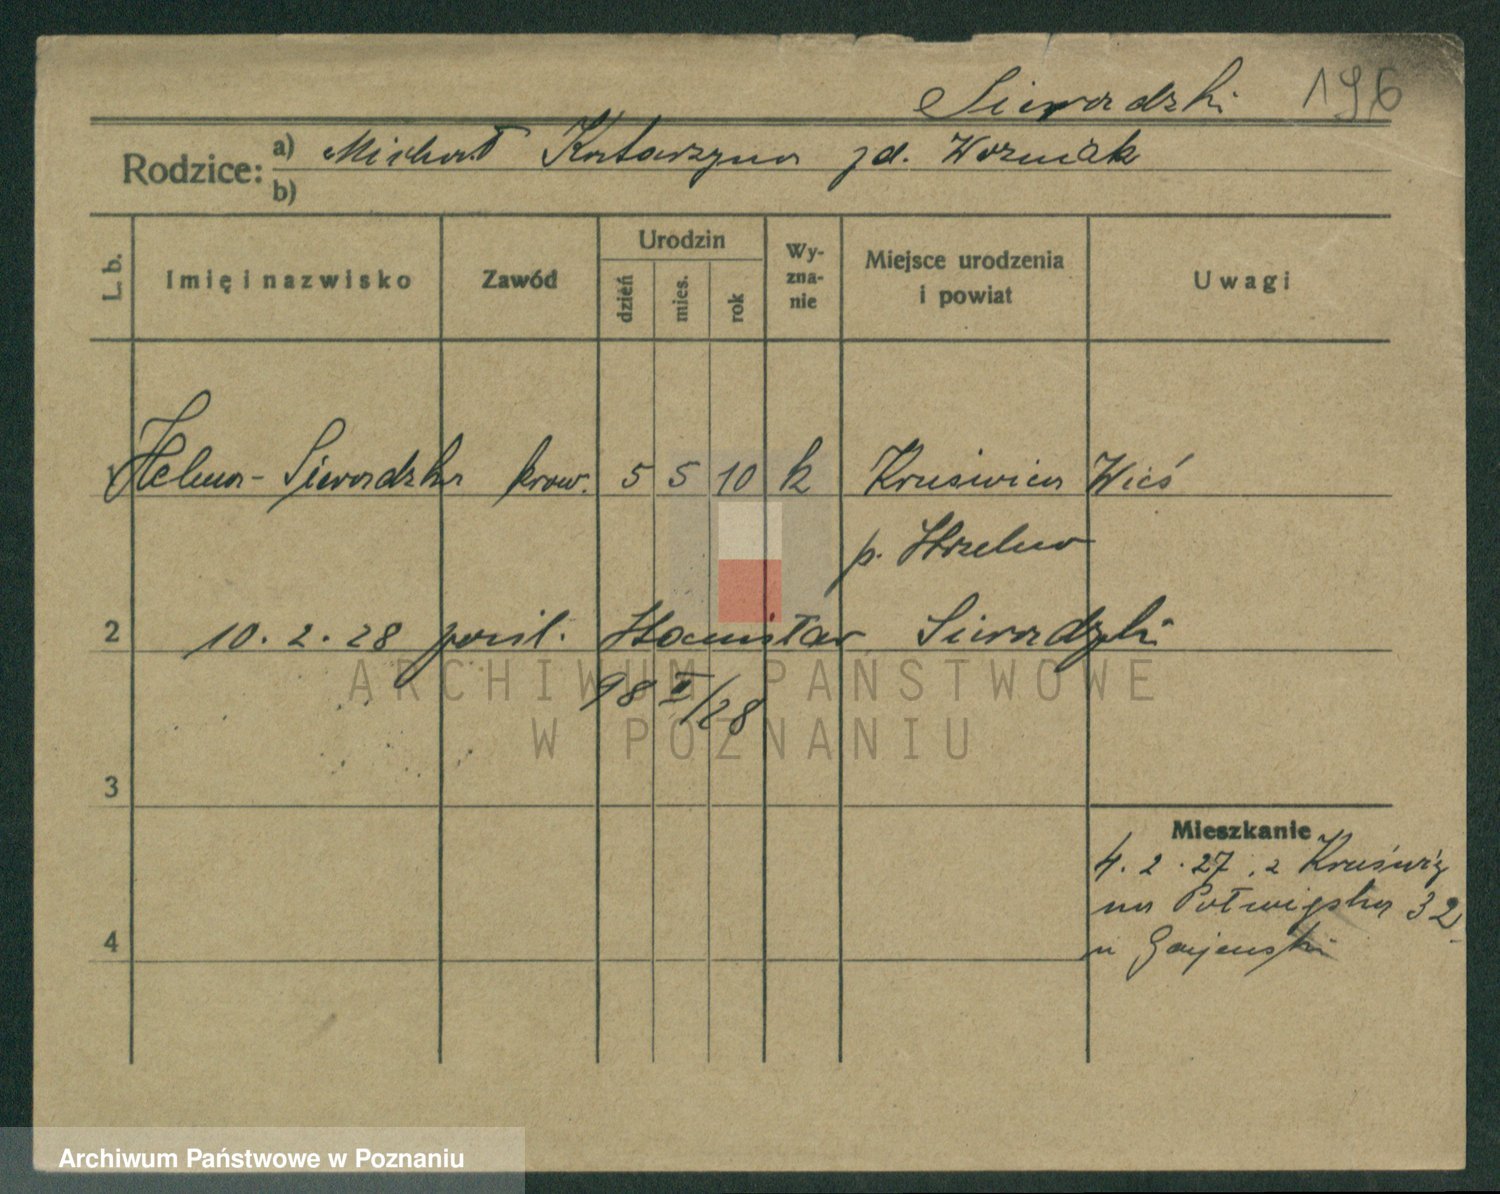 Sieradzki 196
Rodzice: a) Michał Katarzyna zd. Wozniak
b)
L. b. Imię i nazwisko Zawód Urodzin dzień mies. rok Wyznanie Miejsce urodzenia i powiat Uwagi
Helena Sieradzka kraw. 5 5 10 k Kruświca Wieś
p. Strzelno
2 10. 2. 28 pośl. Stanisław Sieradzki
98 II/28
ARCHIWUM PAŃSTWOWE
W POZNANIU
3
Mieszkanie
4. 2. 27. z Kruświcy
na Półwiejska 32
4 u Gajewski
Archiwum Państwowe w Poznaniu